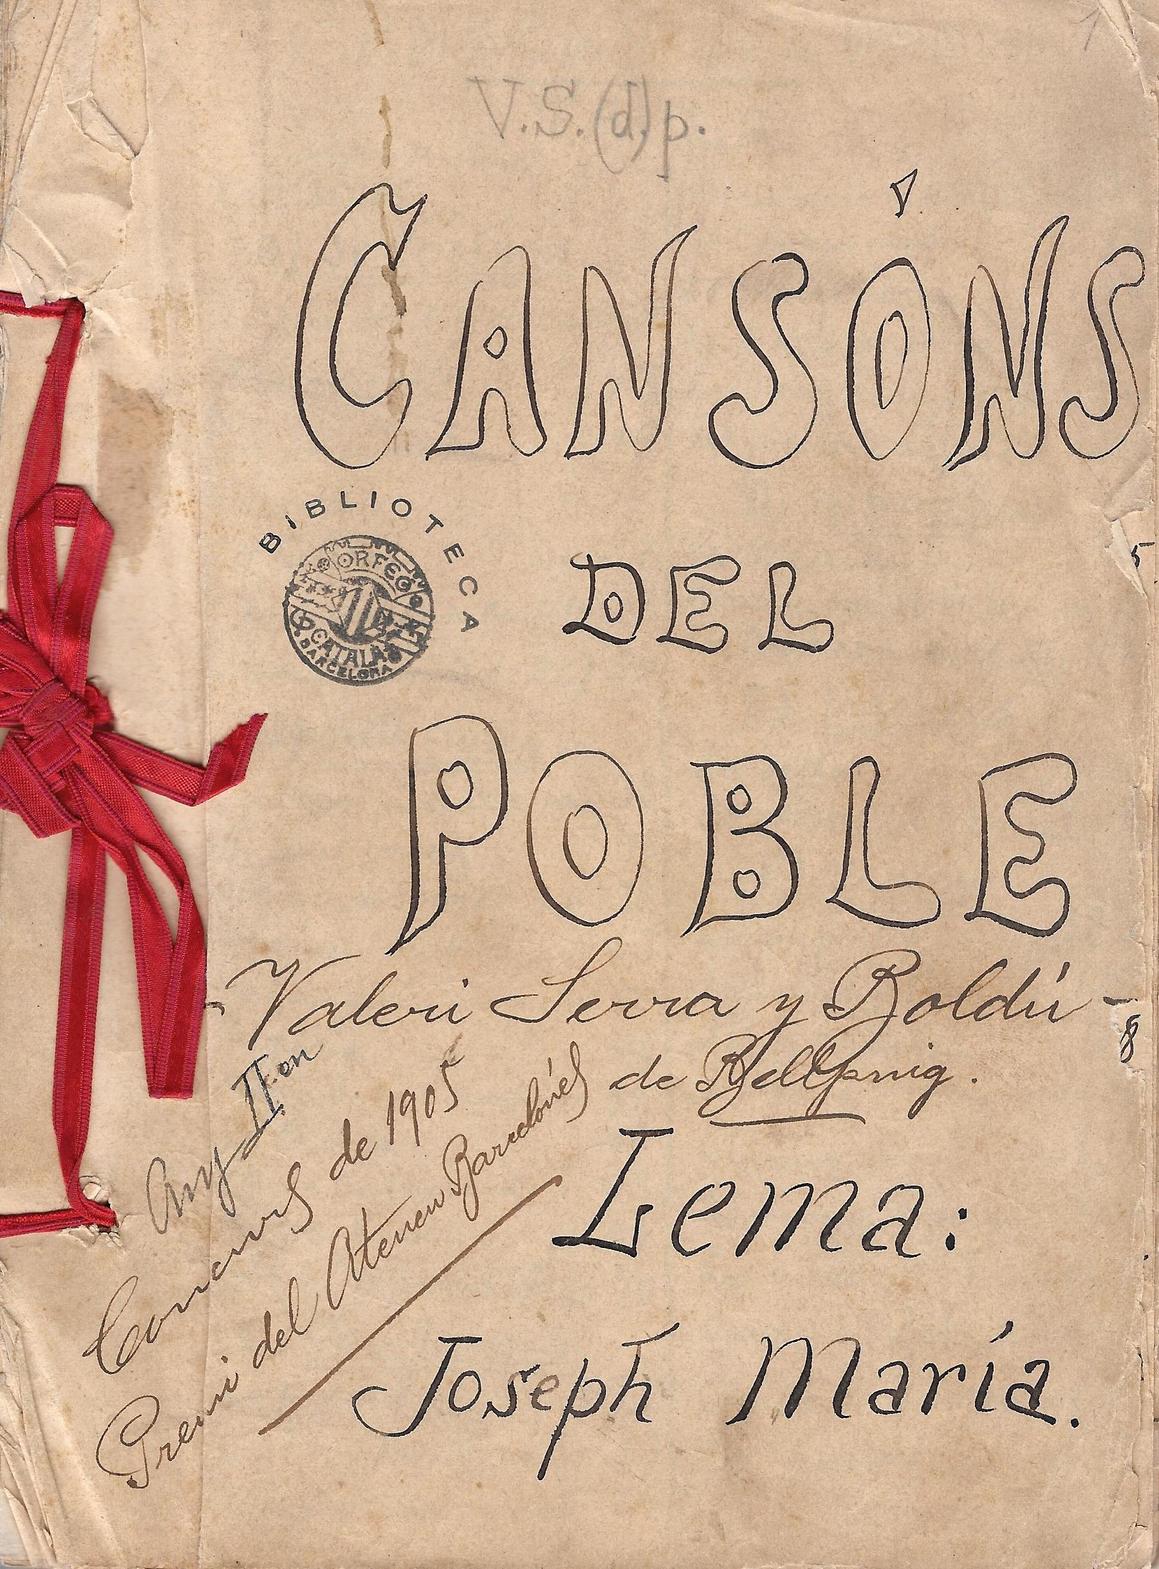 1
V.S.(d)p.
CANSÓNS
BIBLIOTECA
ORFEÓ
CATALÀ
BARCELONA
DEL
5
POBLE
Valeri Serra y Boldú -
8
de Bellpuig.
Any IIon
Concurs de 1905
Premi del Ateneu Barcelonés
Lema:
Joseph María.